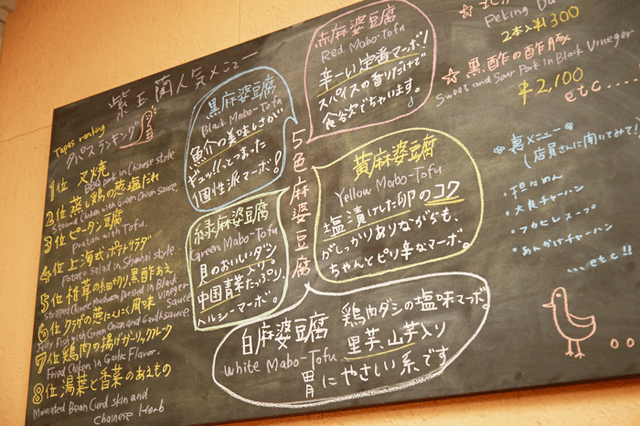 紫玉蘭人気メニュー
Tapas ranking
タパスランキング
1位 叉焼
BBQ pork in Chinese style
2位 蒸し鶏の葱塩だれ
Steamed Chicken with Green Onion Sauce
3位 ピータン豆腐
Pitan with Tofu.
4位 上海式ポテトサラダ
Potato Salad in Shanhai style.
5位 椎茸の細切り黒酢あえ
Stripped Chinese mushroom Dressed in Black Vinegar Sauce
6位 クラゲの葱にんにく風味
Jelly Fish with Green Onion and Garlic sauce
7位 鶏肉の揚げガーリック
Fried Chicken in Garlic Flavor.
8位 湯葉と香菜のあえもの
Marinated Bean Curd skin and
Chainese Herb
5色麻婆豆腐
黒麻婆豆腐
Black Mabo-Tofu
魚介の美味しさが
ギュッ!とつまった
個性派マーボ!
赤麻婆豆腐
Red Mabo-Tofu
辛ーい定番マーボ!
スパイスの香りだけで
食欲でちゃいます。
緑麻婆豆腐
Green Mabo-Tofu
貝のおいしいダシ
中国青菜たっぷり、
ヘルシーマーボ。
黄麻婆豆腐
Yellow Mabo-Tofu
塩漬けした卵のコク
がしっかりありながらも、
ちゃんとピリ辛なマーボ。
白麻婆豆腐
White Mabo-Tofu
鶏肉ダシの塩味マーボ。
里芋、山芋入り
胃にやさしい系です
Peking Du
2本入¥1300
☆黒酢の酢豚
Sweet and Sour Pork in Black Vineger
¥2,100
etc....
裏メニュー
(店員さんに聞いてみて!)
・担々めん
・大良チャーハン
・フカヒレスープ
・あんかけチャーハン
...etc!!